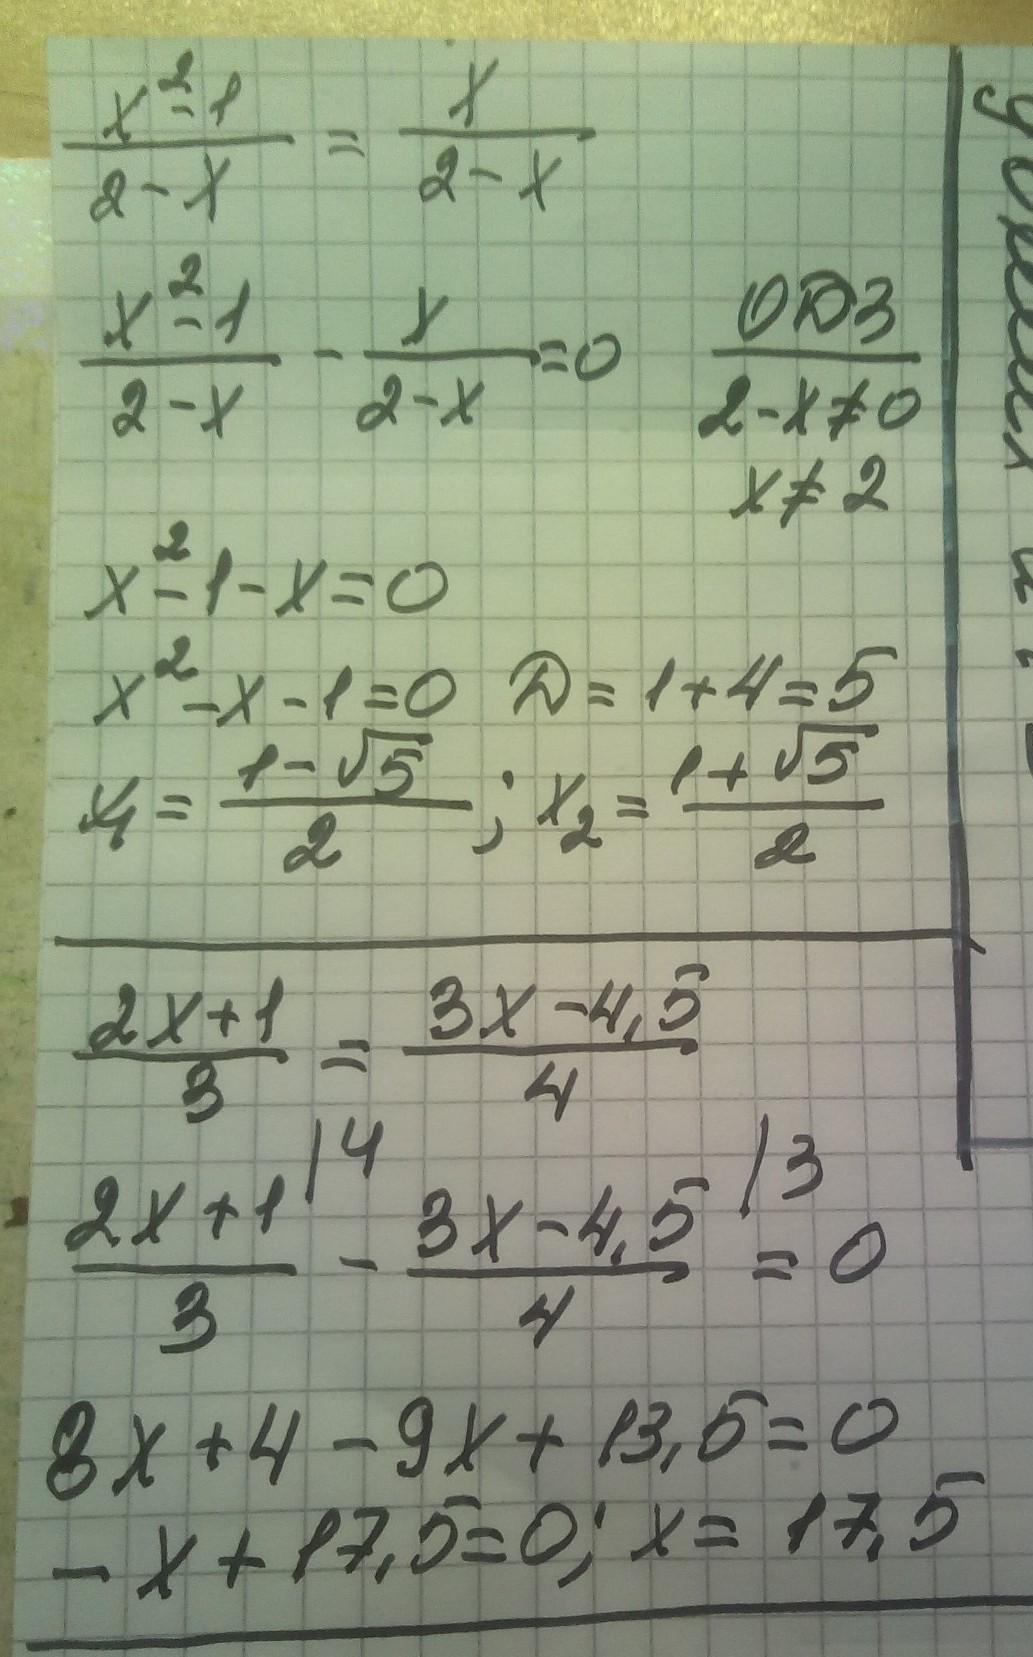 (x²-1)/(2-x) = x/(2-x)
(x²-1)/(2-x) - x/(2-x) = 0
ОДЗ
2-x≠0
x≠2
x²-1-x=0
x²-x-1=0 D=1+4=5
x₁=(1-√5)/2 ; x₂=(1+√5)/2
(2x+1)/3 = (3x-4,5)/4
(2x+1)/3 /4 - (3x-4,5)/4 /3 = 0
8x+4-9x+13,5=0
-x+17,5=0; x=17,5